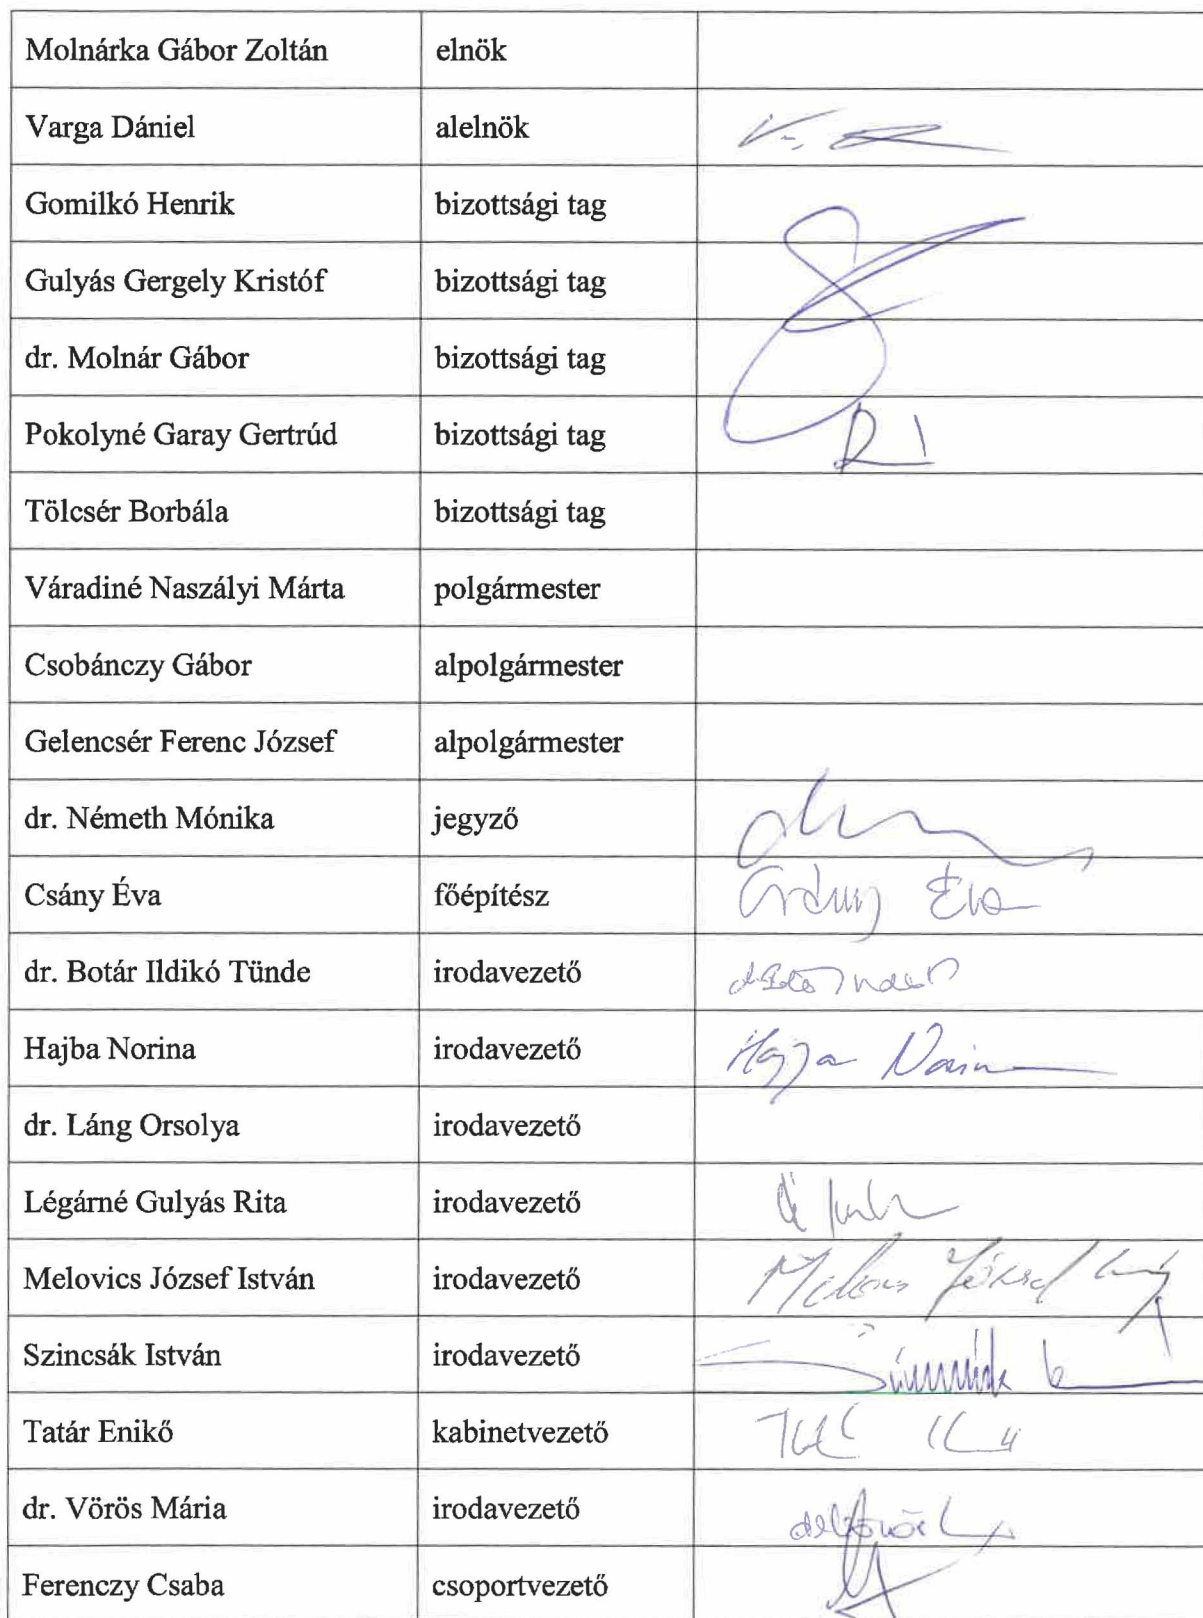 Molnárka Gábor Zoltán elnök
Varga Dániel alelnök
Gomilkó Henrik bizottsági tag
Gulyás Gergely Kristóf bizottsági tag
dr. Molnár Gábor bizottsági tag
Pokolyné Garay Gertrúd bizottsági tag
Tölcsér Borbála bizottsági tag
Váradiné Naszályi Márta polgármester
Csobánczy Gábor alpolgármester
Gelencsér Ferenc József alpolgármester
dr. Németh Mónika jegyző
Csány Éva főépítész Csány Éva
dr. Botár Ildikó Tünde irodavezető
Hajba Norina irodavezető Hajba Norina
dr. Láng Orsolya irodavezető
Légárné Gulyás Rita irodavezető
Melovics József István irodavezető Melovics József István
Szincsák István irodavezető
Tatár Enikő kabinetvezető
dr. Vörös Mária irodavezető
Ferenczy Csaba csoportvezető